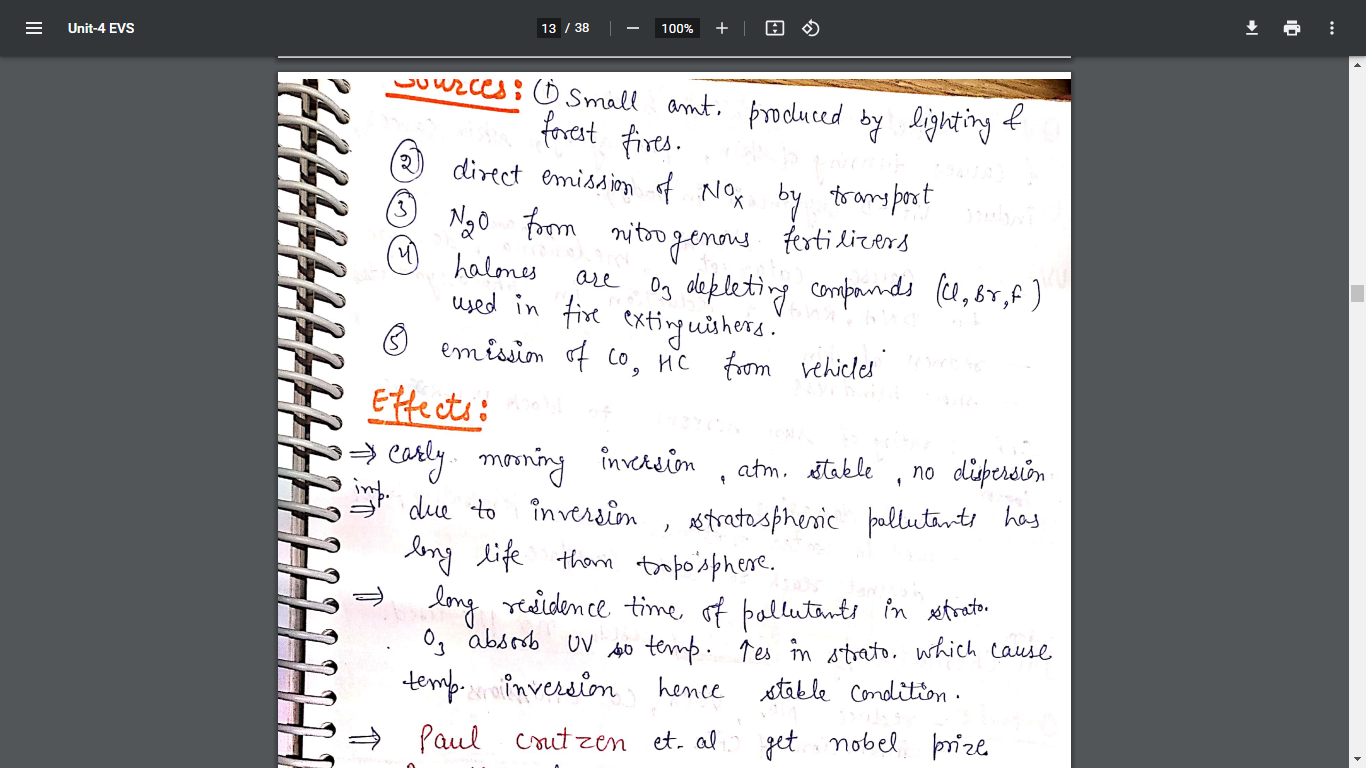 Unit-4 EVS
13 / 38
100%
Sources: ① Small amt. produced by lighting &
forest fires.
② direct emission of NOx by transport
③ N2O from nitrogenous fertilizers
④ halones are O3 depleting compounds (Cl, Br, F)
used in fire extinguishers.
⑤ emission of CO, HC from vehicles
Effects:
⇒ early morning inversion, atm. stable, no dispersion
imp.
⇒ due to inversion, stratospheric pollutants has
long life than troposphere.
⇒ long residence time of pollutants in strato.
O3 absorb UV so temp. ↑es in strato. which cause
temp. inversion hence stable condition.
⇒ Paul crutzen et. al get nobel prize